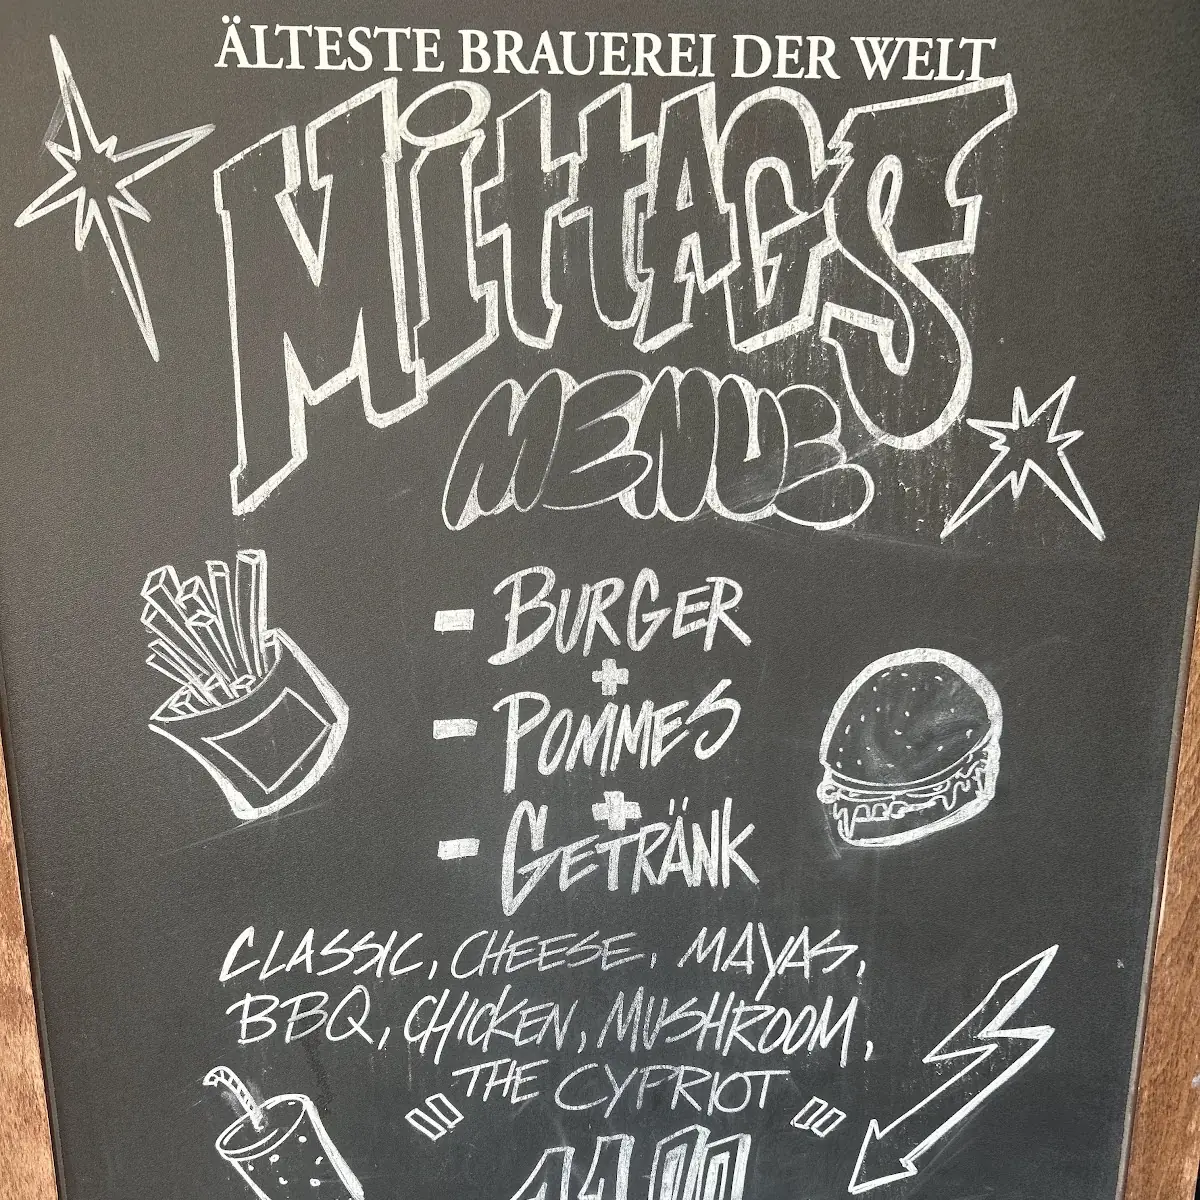 ÄLTESTE BRAUEREI DER WELT
MITTAGS
MENUE
- BURGER
+
- POMMES
+
- GETRÄNK
CLASSIC, CHEESE, MAYAS,
BBQ, CHICKEN, MUSHROOM,
THE CYPRIOT